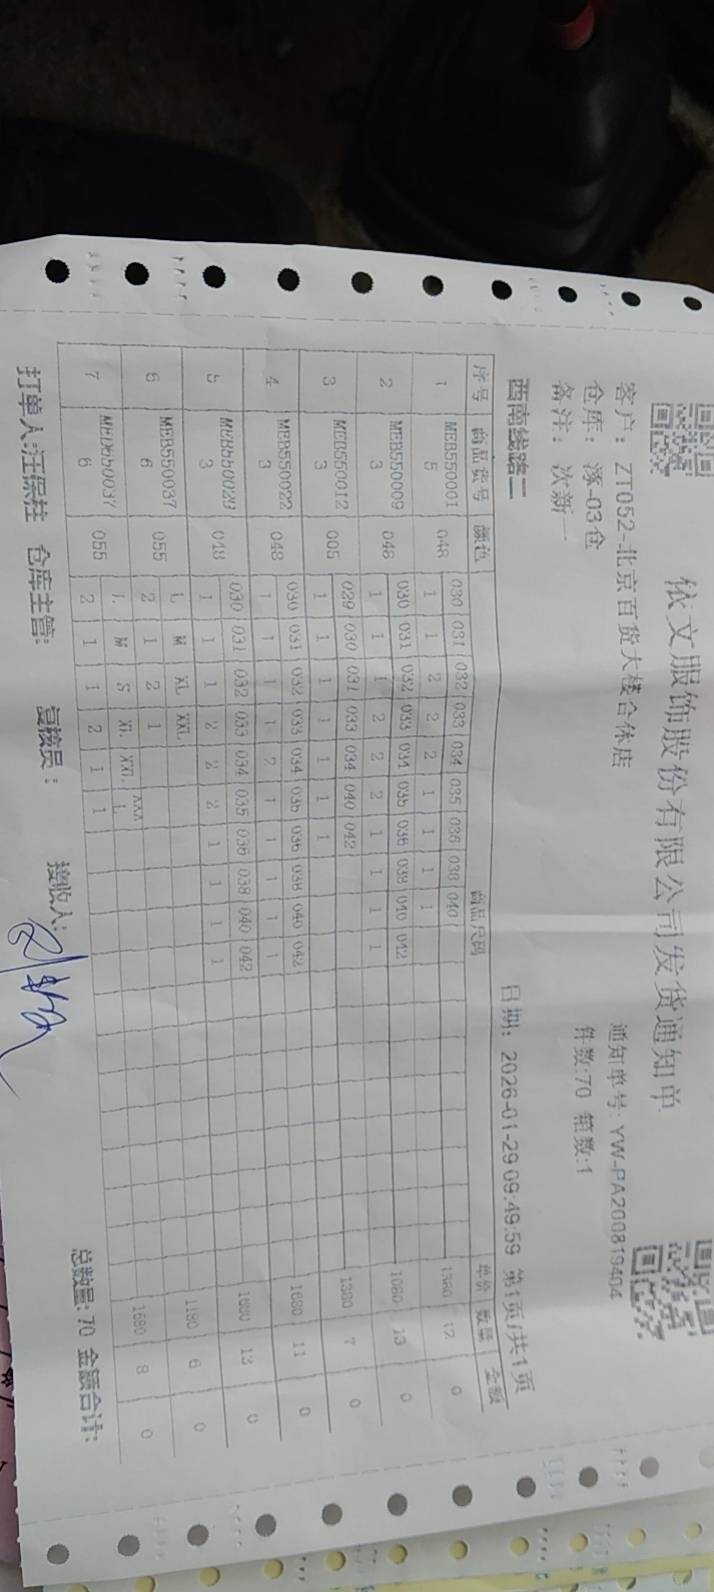 依文服饰股份有限公司发货通知单
客户：ZT052-北京百货大楼合体店 通知单号:YW-PA200819404
仓库：涿-03仓 件数:70 箱数:1
备注：次新一
西南线路二 日期：2026-01-29 09:49:59 第1页/共1页
序号 商品货号 颜色 商品尺码 单价 数量 金额
1 MEB5500015 048 030 031 032 033 034 035 036 038 040 1380 12 0
1 1 2 2 2 1 1 1 1
2 MEB5500093 048 030 031 032 033 034 035 036 038 040 042 1080 13 0
1 1 1 2 2 2 1 1 1 1
3 MEB5500123 005 029 030 031 033 034 040 042 1380 7 0
1 1 1 1 1 1 1
4 MEB5500223 048 030 031 032 033 034 035 036 038 040 042 1680 11 0
1 1 1 1 2 1 1 1 1 1
5 MEB5500293 048 030 031 032 033 034 035 036 038 040 042 1680 13 0
1 1 1 2 2 2 1 1 1 1
6 MEB5500376 055 L M XL XXL 1180 6 0
2 1 2 1
7 MEB5500376 055 L M S XL XXL 1680 8 0
2 1 1 2 1 1
打单人:汪保柱 仓库主管: 复核员： 接收人: 总数量: 70 金额合计: